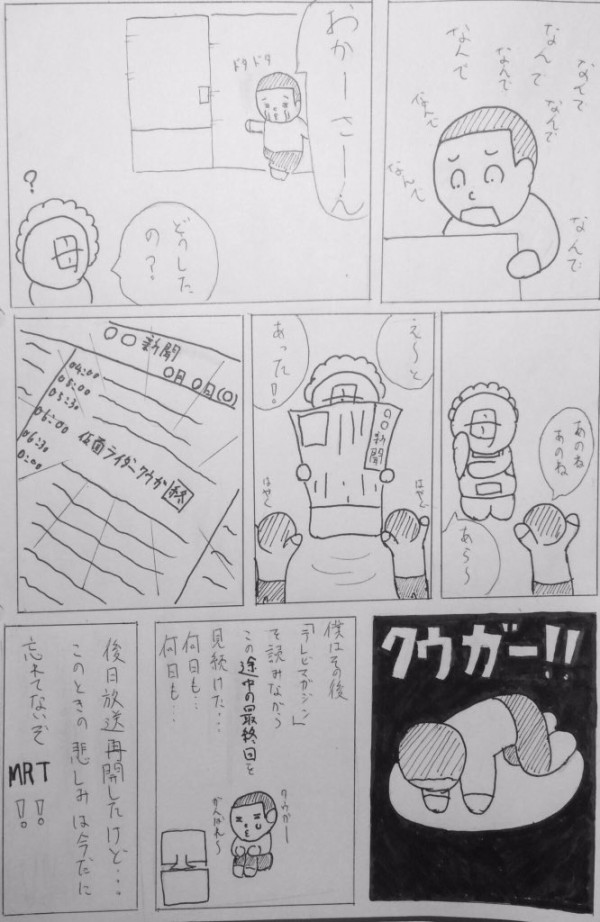 なんで
なんで
なんで
なんで
なんで
なんで
なんで
なんで
おかーさーん
ドタドタ
母
?
どうした
の?
あのね
あのね
母
あら〜
え〜と
あった!
母
〇〇新聞
はやく
はやく
〇〇新聞
〇月〇日(〇)
04:00
05:00
05:30
06:00 仮面ライダークウガ 終
06:30
クウガー!!
僕はその後
「テレビマガジン」
を読みながら
この途中の最終回を
見続けた…
何日も…
何日も…
クウガー
がんばれ〜
後日放送再開したけど…
このときの悲しみは今だに
忘れてないぞ
MRT
!!